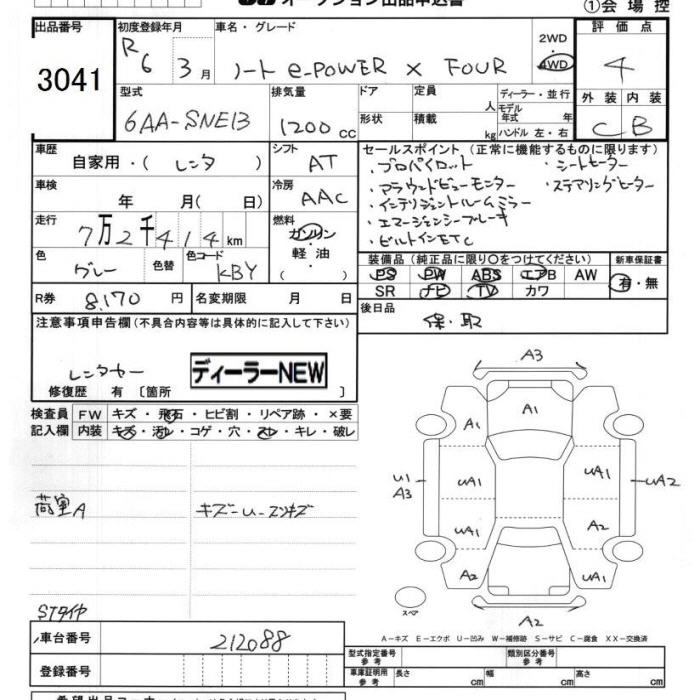 オークション出品申込書
①会場控
出品番号
3041
初度登録年月
R6 3月
車名・グレード
ノート e-POWER X FOUR
2WD
・
4WD
評価点
4
型式
6AA-SNE13
排気量
1200 cc
ドア
形状
定員
人
積載
kg
ディーラー・並行
モデル
年式 年
ハンドル 左・右
外装 内装
C B
車歴
自家用・( レンタ )
シフト
AT
セールスポイント (正常に機能するものに限ります)
・プロパイロット
・シートヒーター
・アラウンドビューモニター
・ステアリングヒーター
・インテリジェントルームミラー
・エマージェンシーブレーキ
・ビルトインETC
車検
年 月( 日)
冷房
AAC
走行
7万2千414km
燃料
ガソリン
・
軽油
( )
色
グレー
色替
色コード
KBY
装備品 (純正品に限り○をつけてください)
PS PW ABS エアB AW
SR ナビ TV カワ
新車保証書
有・無
R券
8,170 円
名変期限
月 日
後日品
保・取
注意事項申告欄 (不具合内容等は具体的に記入して下さい)
レンタカー
ディーラーNEW
修復歴 有 〔箇所 〕
検査員
記入欄
FW キズ・飛石・ヒビ割・リペア跡・×要
内装 キズ・汚レ・コゲ・穴・スレ・キレ・破レ
荷室A
キズ-U-スリキズ
STタイヤ
A3
A1
A1
A1
U1
A3
UA1
UA1
UA2
UA1
A2
A2
UA1
スペア
A2
A-キズ E-エクボ U-凹み W-補修跡 S-サビ C-腐食 XX-交換済
車台番号
212088
登録番号
型式指定番号
参考
類別区分番号
参考
車庫証明用
参考
長さ cm
幅 cm
高さ cm